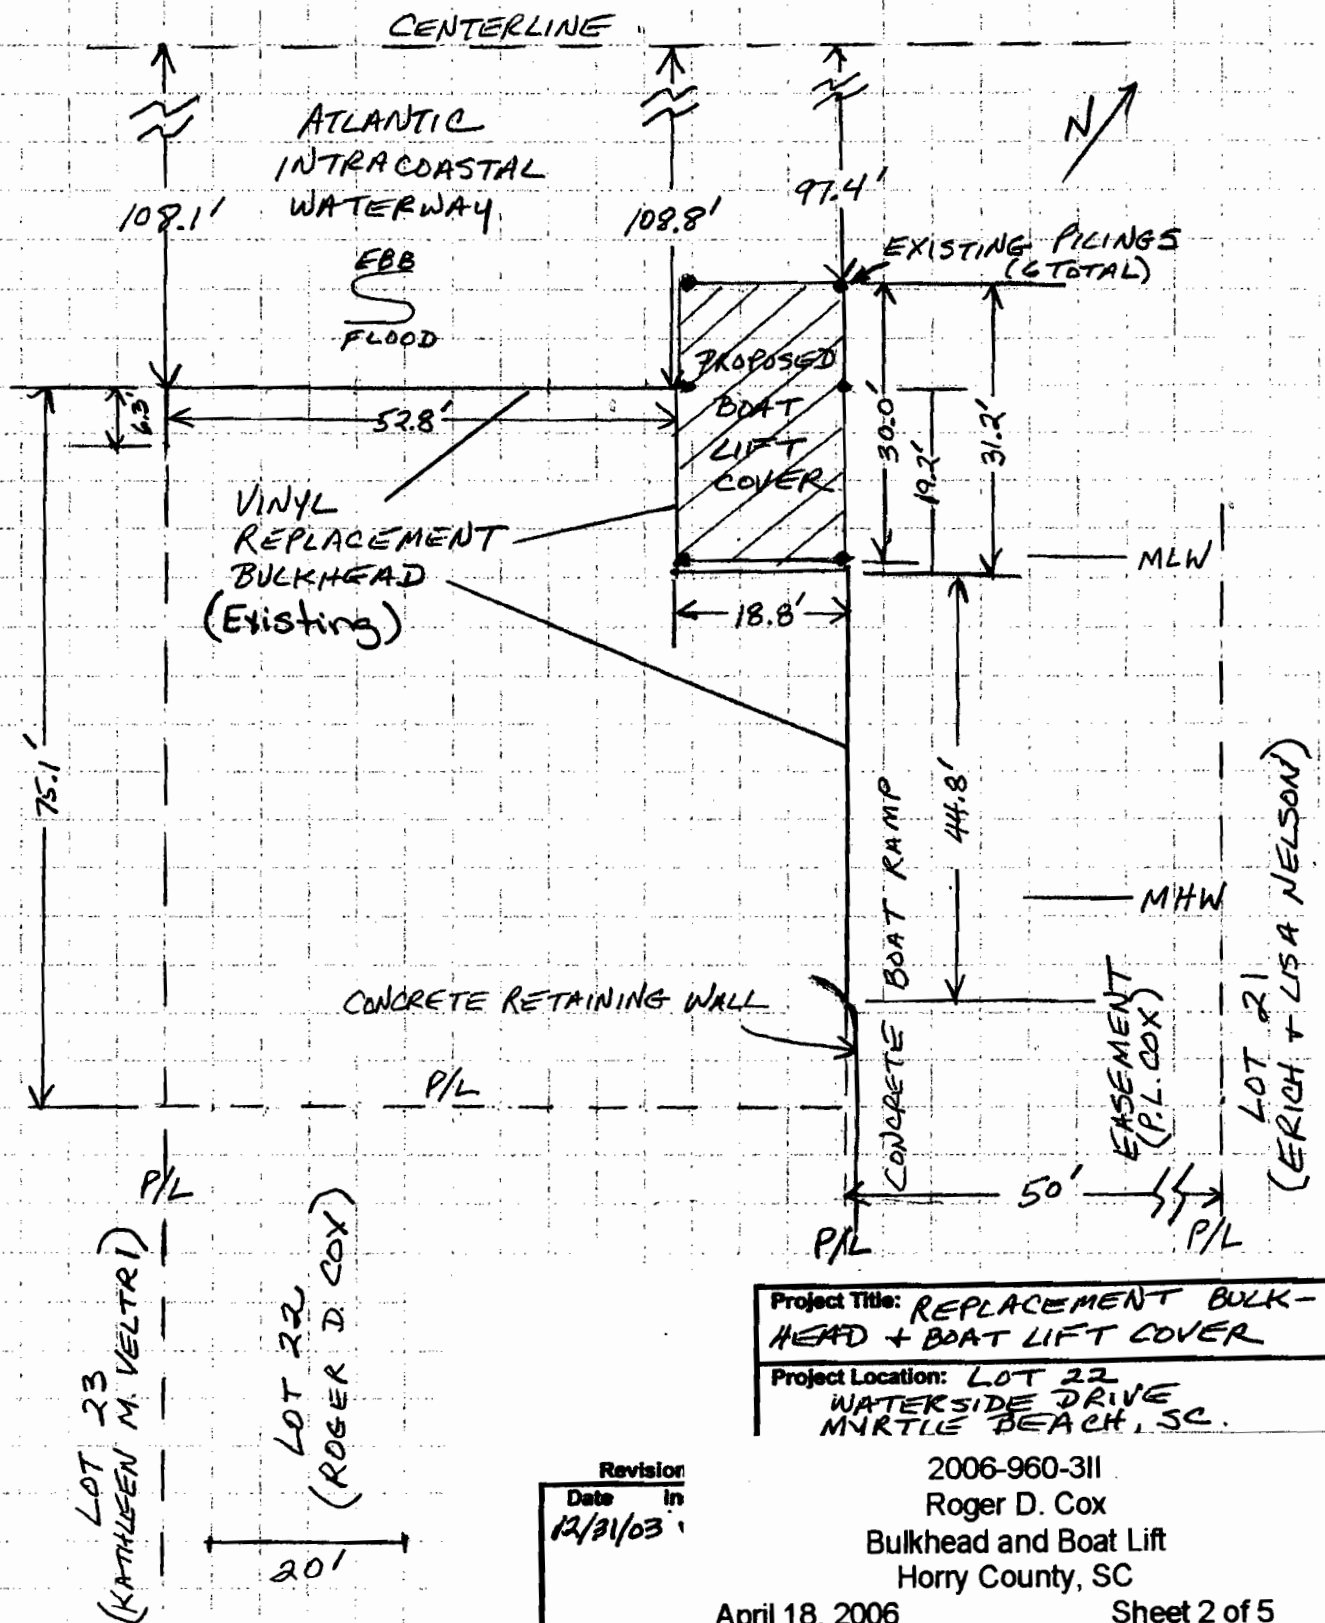 CENTERLINE
ATLANTIC
INTRACOASTAL
WATERWAY
N
108.1'
108.8'
97.4'
EBB
FLOOD
EXISTING PILINGS
(6 TOTAL)
6.3'
52.8'
PROPOSED
BOAT
LIFT
COVER
30.0'
19.2'
31.2'
VINYL
REPLACEMENT
BULKHEAD
(Existing)
MLW
18.8'
75.1'
44.8'
CONCRETE BOAT RAMP
MHW
CONCRETE RETAINING WALL
EASEMENT
(P.L. COX)
LOT 21
(ERICH + LISA NELSON)
P/L
P/L
50'
P/L
P/L
LOT 23
(KATHLEEN M. VELTRI)
LOT 22
(ROGER D. COX)
20'
Project Title: REPLACEMENT BULK-
HEAD + BOAT LIFT COVER
Project Location: LOT 22
WATERSIDE DRIVE
MYRTLE BEACH, SC.
Revision
Date In
12/31/03
2006-960-3II
Roger D. Cox
Bulkhead and Boat Lift
Horry County, SC
April 18, 2006 Sheet 2 of 5